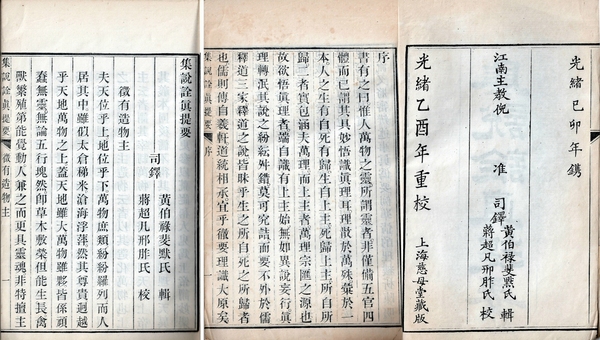 光緒己卯年鐫
江南主教倪 准 司鐸
黃伯祿斐默氏 輯
蔣超凡邢胙氏 校
光緒乙酉年重校 上海慈母堂藏版
序
書有之曰惟人萬物之靈所謂靈者非僅備五官四
體而已謂其具妙悟識眞理耳理散於萬殊彙於一
本人之生有自死有歸生自上主死歸上主所自所
歸二者實包涵夫萬理而上主者萬理宗匯之源也
故欲悟眞理者端自識有上主始無如異說妄行眞
理轉泯其說之紛紜舛錯莫可究詰而要不外於儒
釋道三家釋道之說皆昧乎生之所自死之所歸者
也儒則傳自羲軒道統相承宜乎徹要理識大原矣
集說詮眞提要 序 一
集說詮眞提要
司鐸
黃伯祿斐默氏 輯
蔣超凡邢胙氏 校
徵有造物主
夫天位乎上地位乎下萬物庶類紛紛羅列而人
居其中雖似太倉稊米滄海浮萍然其尊貴迥越
乎天地萬物之上蓋天地雖大萬物雖夥皆係頑
蠢無靈無論五行塊然卽草木敷榮但能生長禽
獸繁殖第能覺動人兼之而更具靈魂非特擅主
集說詮眞提要 徵有造物主 一